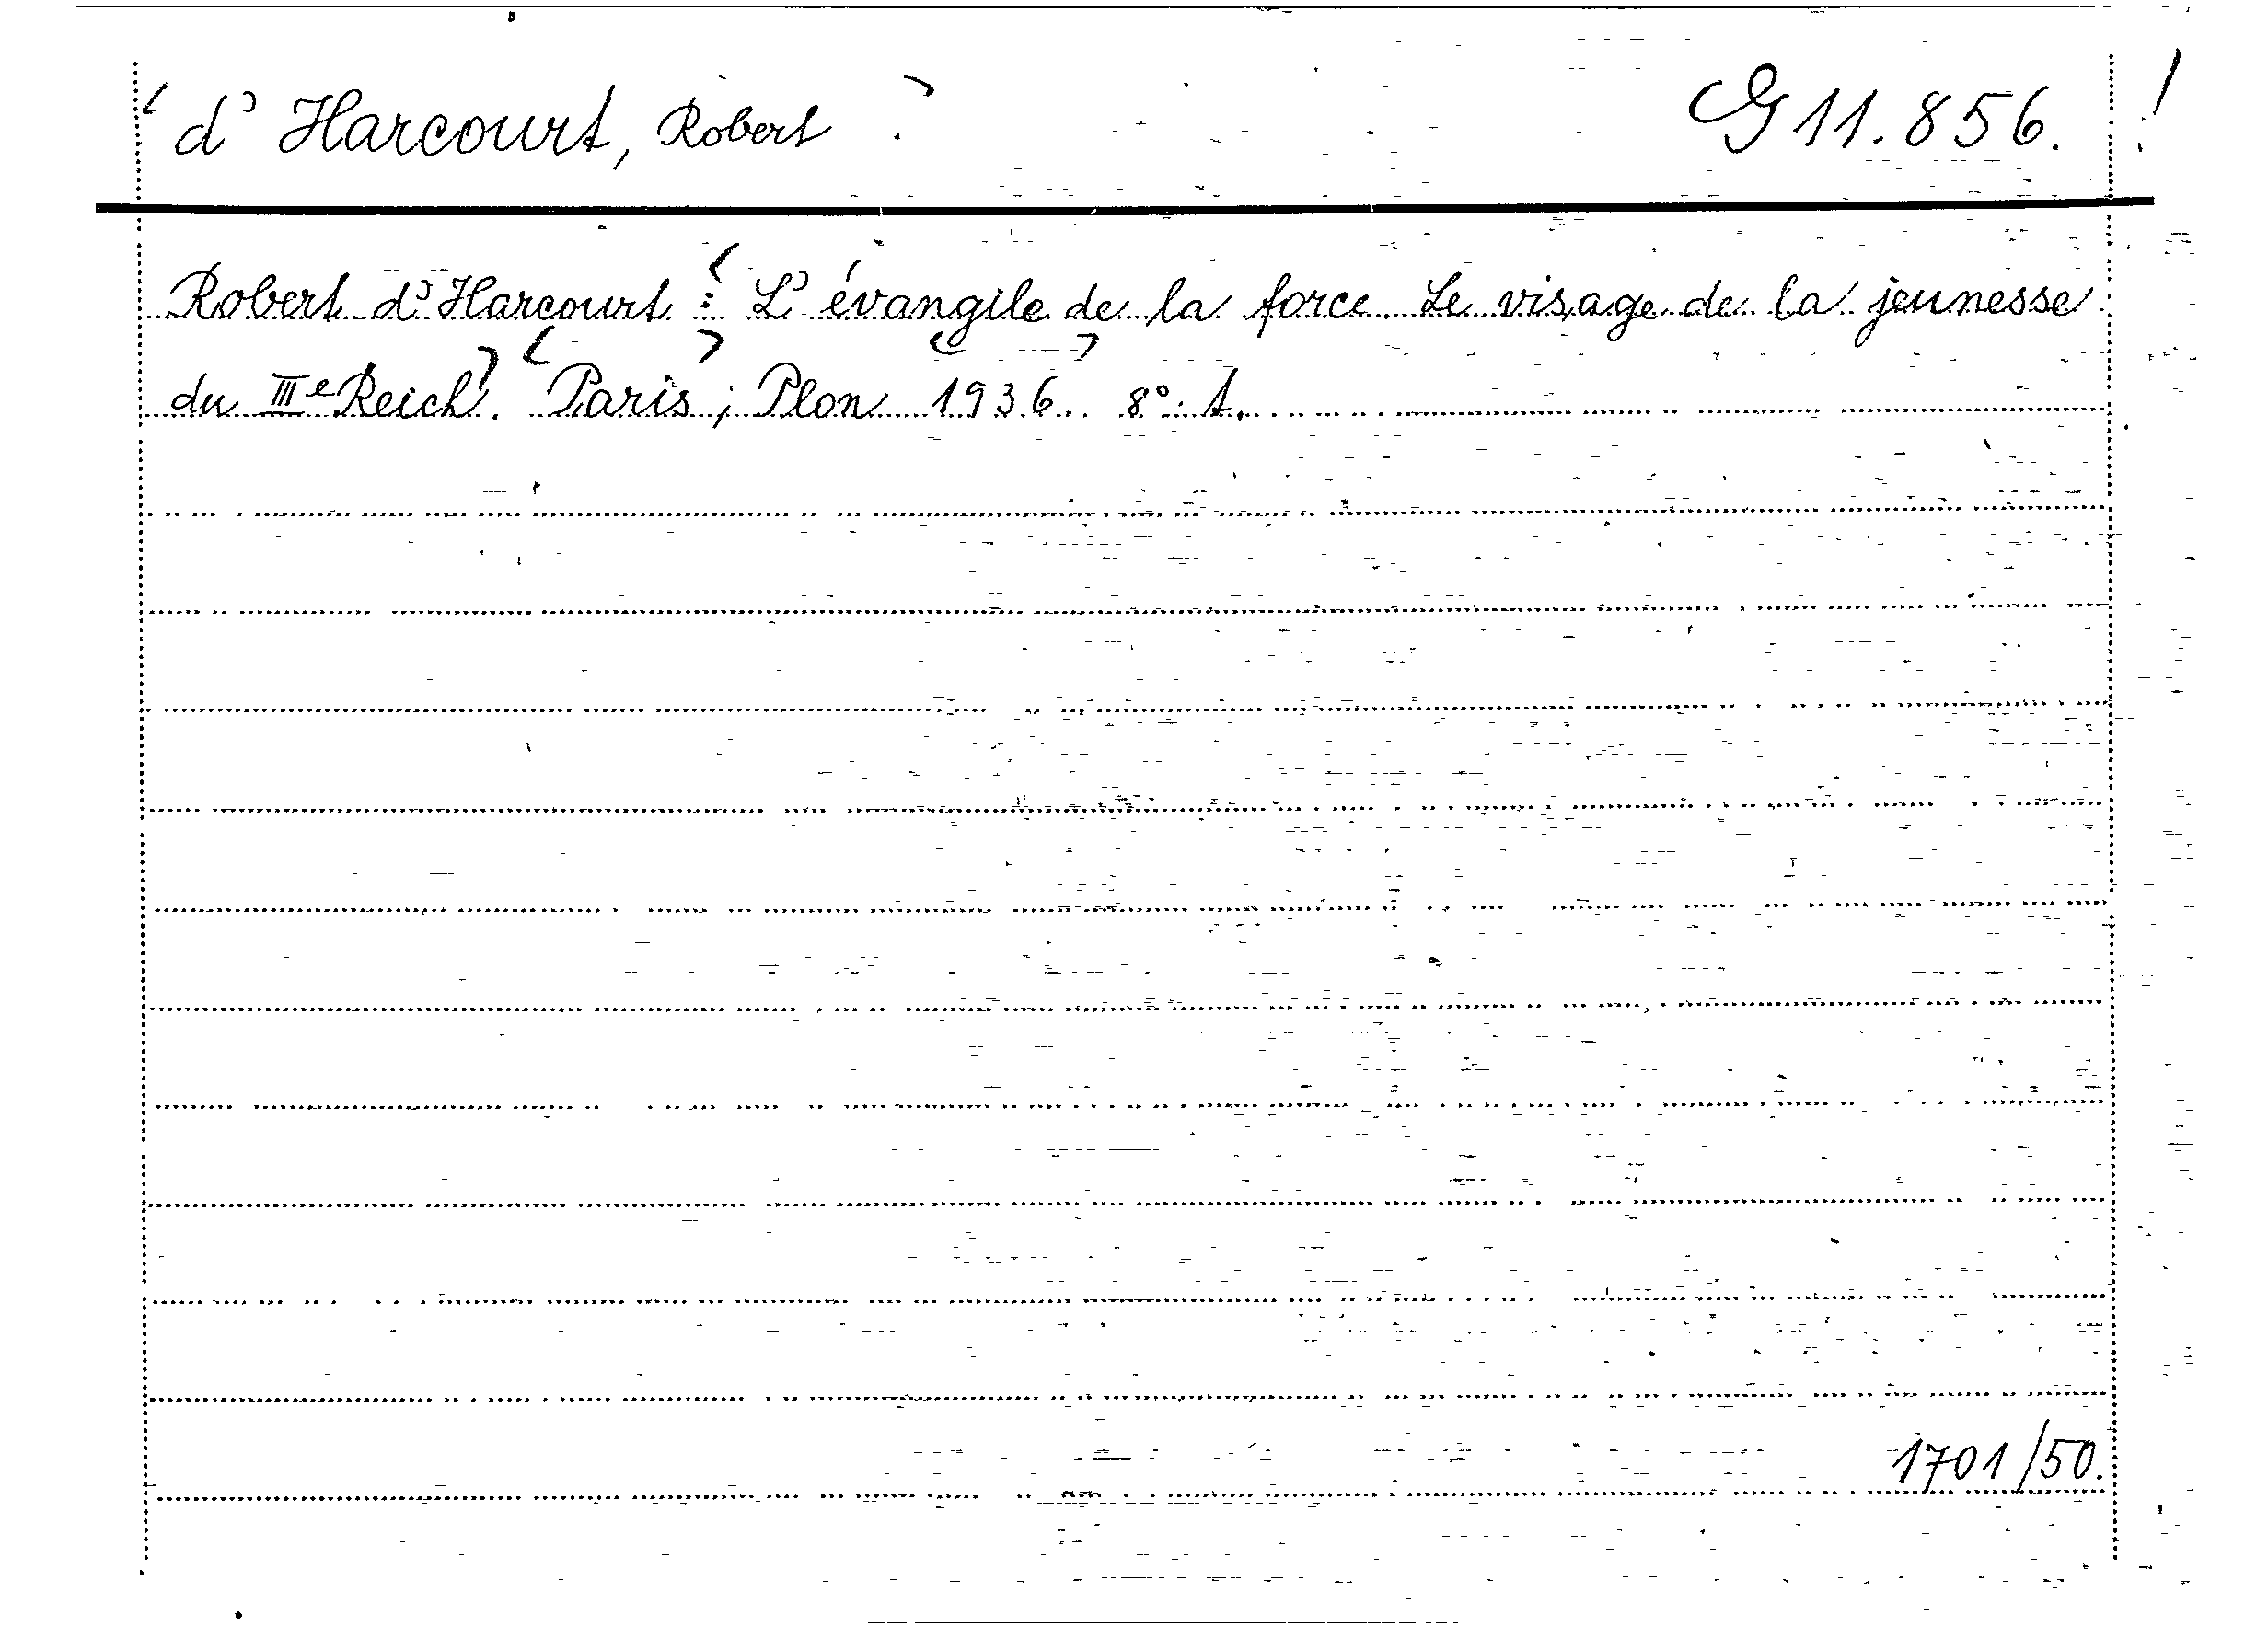 d'Harcourt, Robert G 11.856. !
Robert d'Harcourt: L'évangile de la force. Le visage de la jeunesse
du IIIe Reich. Paris; Plon 1936. 8°. 1.
1701/50.